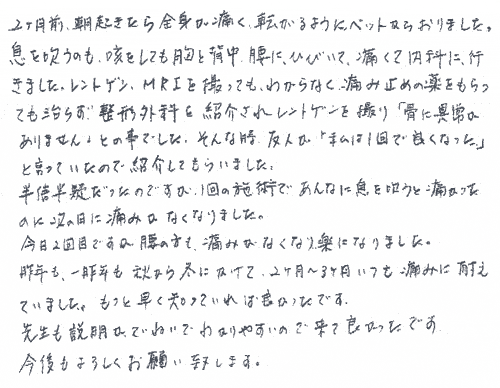 2ヶ月前、朝起きたら全身が痛く、転がるようにベットからおりました。
息を吸うのも、咳をしても胸と背中、腰に、ひびいて、痛くて内科に、行
きました。レントゲン、MRIを撮っても、わからなく、痛み止めの薬をもらっ
ても治らず、整形外科を紹介されレントゲンを撮り「骨に異常が
ありません」との事でした。そんな時、友人が「私は1回で良くなった。」
と言っていたので紹介してもらいました。
半信半疑だったのですが、1回の施術であんなに息を吸うと痛かった
のに次の日に痛みがなくなりました。
今日2回目ですが腰の方も、痛みがなくなり、楽になりました。
昨年も、一昨年も秋から冬にかけて、2ヶ月〜3ヶ月いつも痛みに耐え
ていました。もっと早く知っていれば良かったです。
先生も説明が、ていねいでわかりやすいので来て良かったです
今後もよろしくお願い致します。